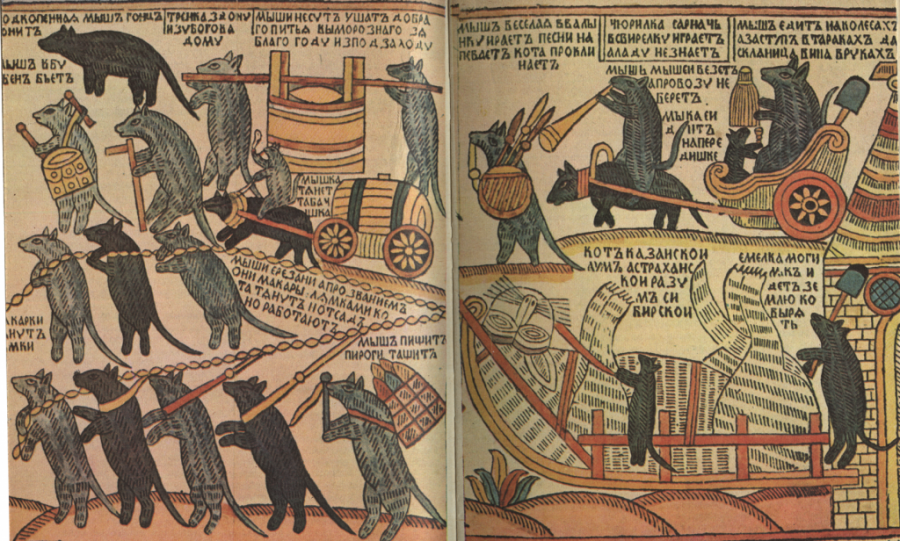 ОДКОПЕННАЯ МЫШЪ ГОНЦЪ
ОНИТЪ
ТРЕНКА З ДОНУ
ИЗУБОГОВА
ДОМУ
МЫШИ НЕСУТЪ УШАТЪ ДОБРА
ГО ПИТЬЯ ВЫМОРОЗНАГО ЗА
БЛАГО ГОДУ ИЗПОД ЗАХОДУ
ЫШЪ В БУ
БЕН БЬЕТЪ
МЫШКА
ТАНЕТ
ТАБАЧ
ИШКА
МЫШИ ЕРЕЗАНИ А ПРОЗВАНИЕМЪ
ОНИ МАКАРЫ ЛАМКАМИ КО
ТА ТАНУТЪ И ОТСАДЪ
НО РАБОТАЮТЪ
КАРКИ
НУТЪ
МКИ
МЫШЪ ПИЩИТЪ
ПИРОГИ ТАЩИТЪ
МЫШЪ ВЕСЕЛАЯ ВВАЛЫ
НКУ ИГРАЕТЪ ПЕСНИ НА
ПЕВАЕТЪ КОТА ПРОКЛИ
НАЕТЪ
ЧЮРИЛКА САРНАЧЬ
ВСВИРЕЛКУ ИГРАЕТЪ
АЛАДУ НЕ ЗНАЕТЪ
МЫШЪ ЕДИТЪ НА КОЛЕСАХЪ
АЗАСТУПЪ В ТАРАКАХЪ ДА
СКЛАНИЦА ВИНА В РУКАХЪ
МЫШЬ МЫШСИ ВЕЗЕТЪ
АПРОВОЗУ НЕ
БЕРЕТЪ
МЫКА СИ
ДИТЪ
НАПЕРЕ
ДИШКЕ
КОТЪ КАЗАНСКОИ
АУМЪ АСТРАХАНС
КОИ РАЗУ
МЪ СИ
БИРСКОИ
ЕМЕЛКА МОГИ
ЛАКЪ И
ДЕТЪ ЗЕ
МЛЮ КО
ВЫРЯ
ТЬ